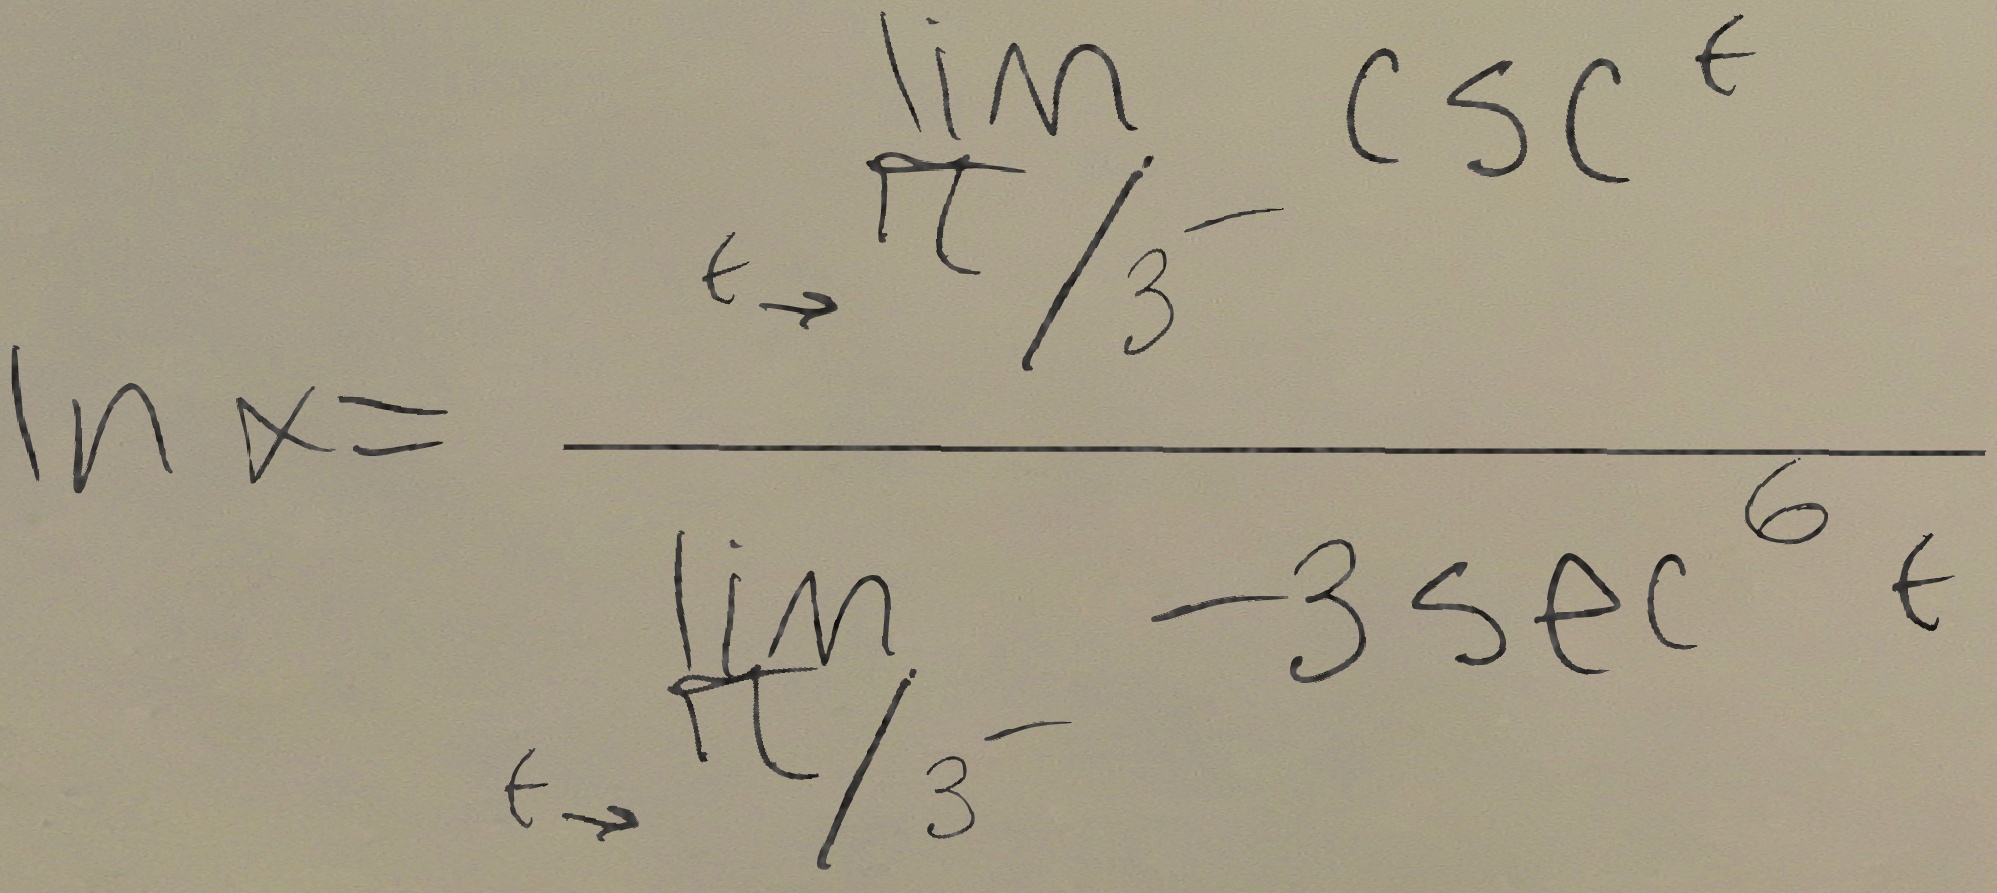 ln x = \frac{\lim_{t \to \pi/3^-} \csc t}{\lim_{t \to \pi/3^-} -3 \sec^6 t}